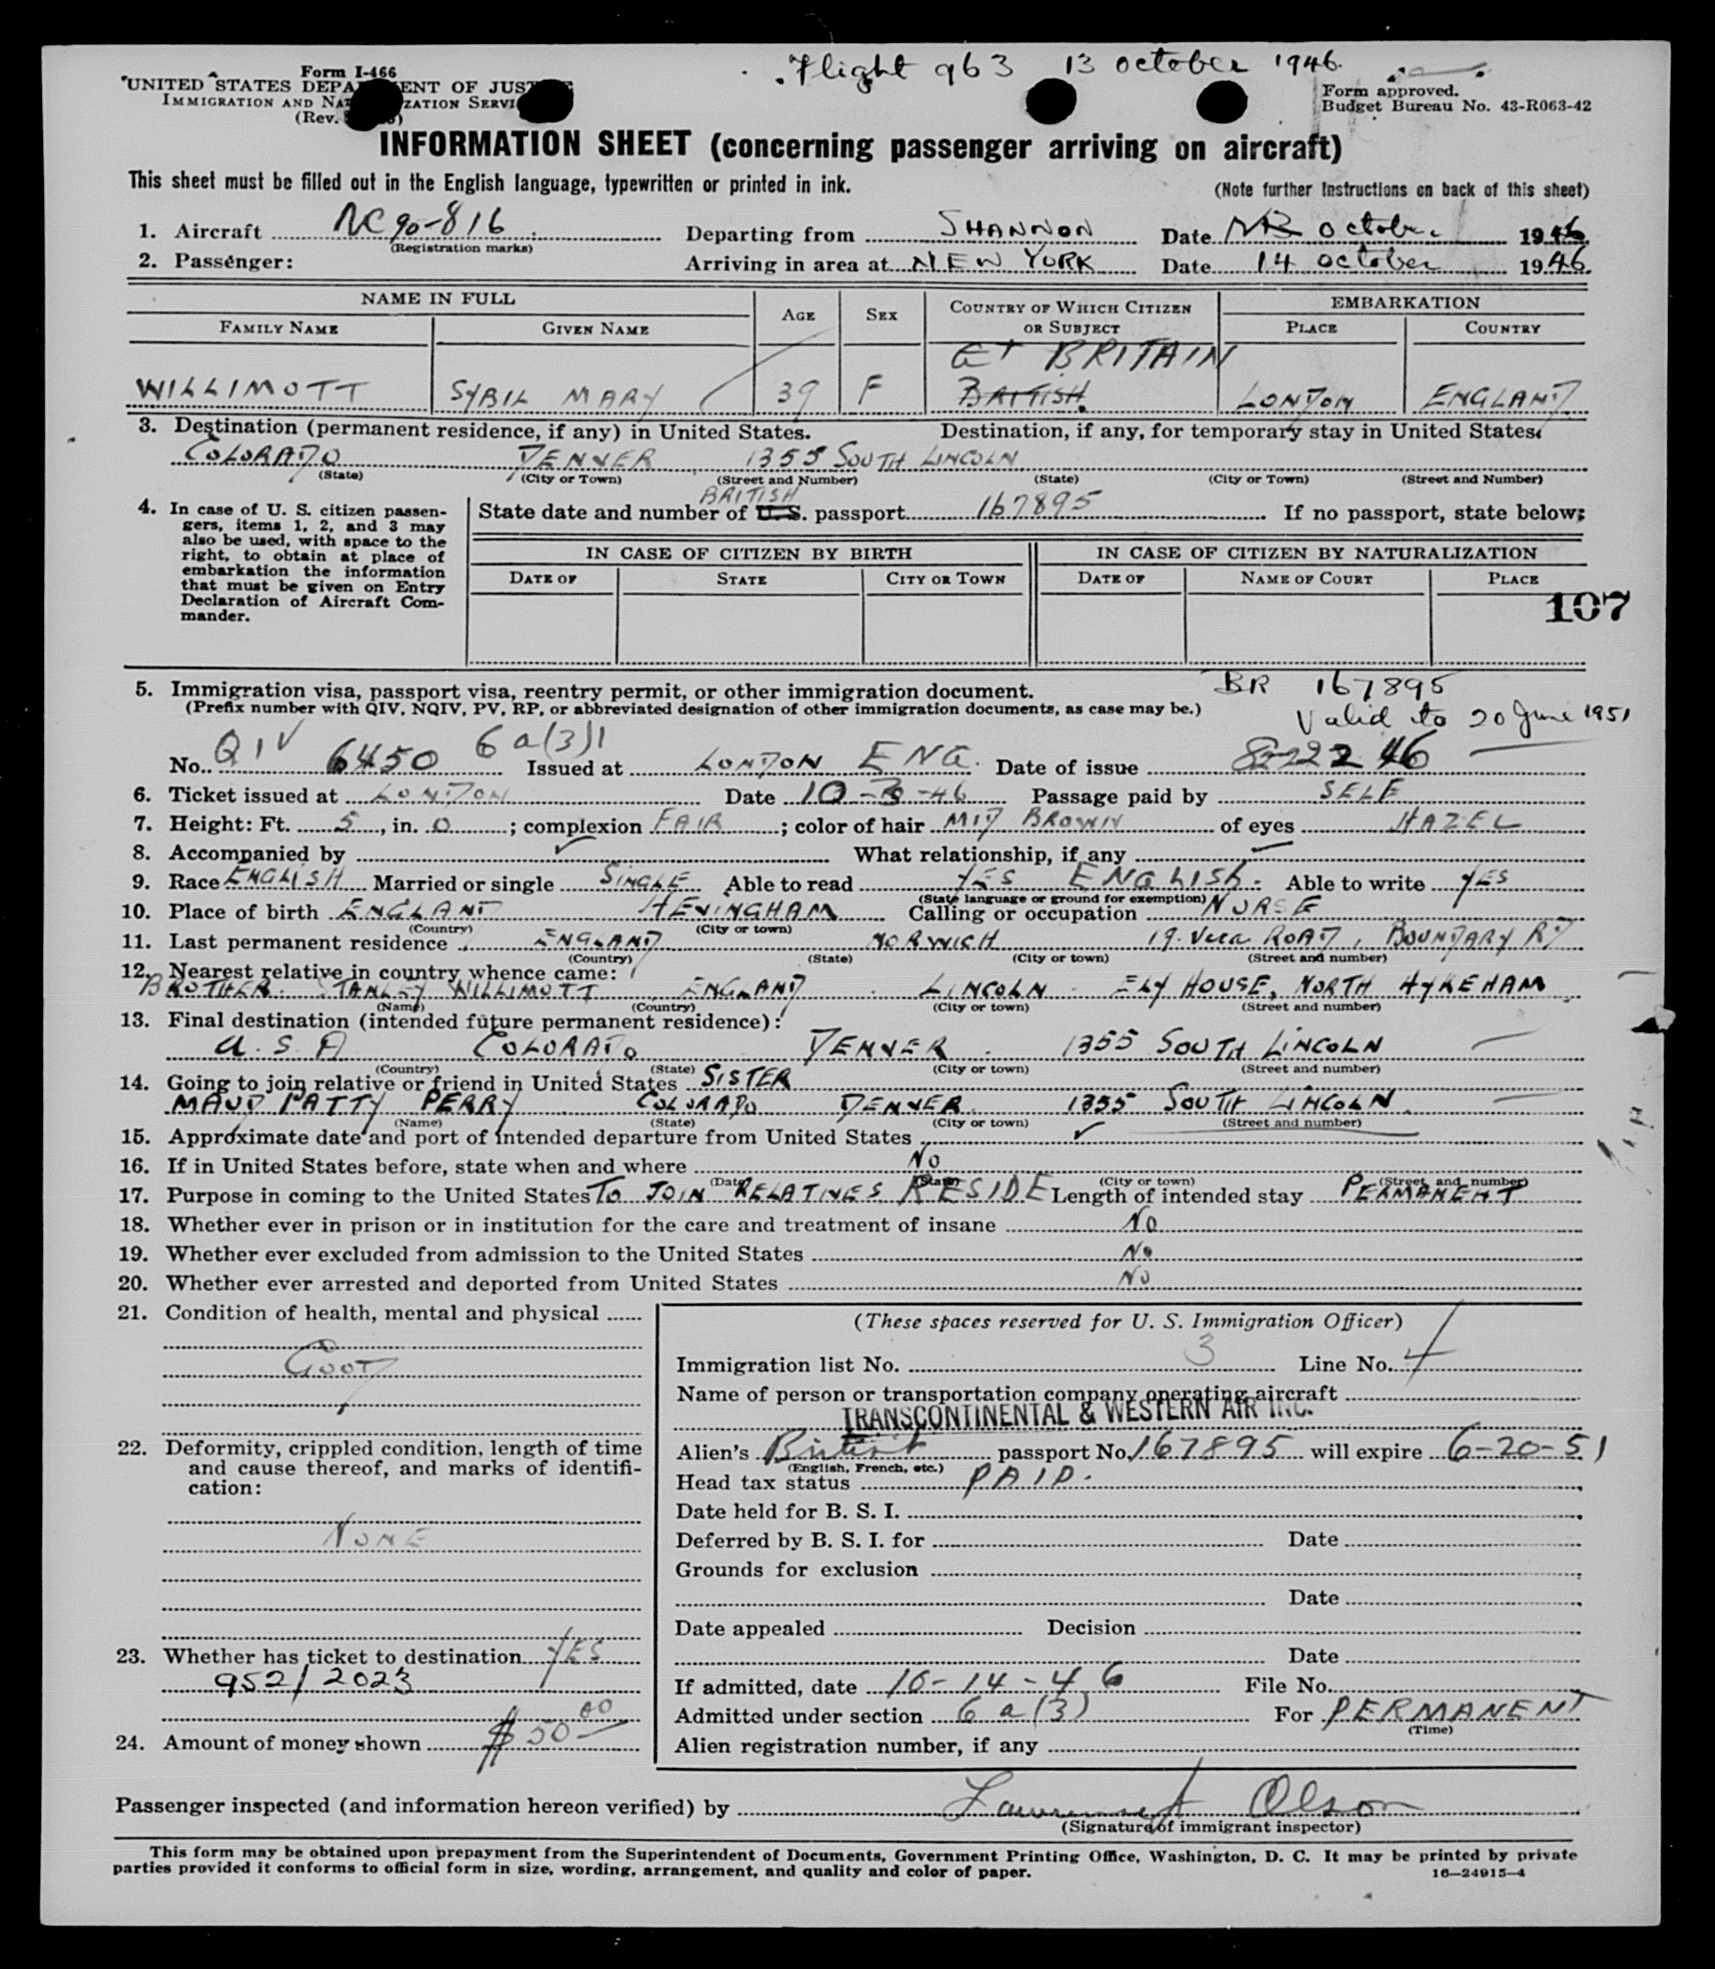 Flight 963 13 October 1946
Form I-466
UNITED STATES DEPARTMENT OF JUSTICE
IMMIGRATION AND NATURALIZATION SERVICE
(Rev.
Form approved.
Budget Bureau No. 43-R063-42
INFORMATION SHEET (concerning passenger arriving on aircraft)
This sheet must be filled out in the English language, typewritten or printed in ink. (Note further instructions on back of this sheet)
1. Aircraft NC 90-816 Departing from SHANNON Date October 1946
(Registration marks)
2. Passenger: Arriving in area at NEW YORK Date 14 October 1946.
NAME IN FULL AGE SEX COUNTRY OF WHICH CITIZEN OR SUBJECT EMBARKATION
FAMILY NAME GIVEN NAME PLACE COUNTRY
GT BRITAIN
WILLIMOTT SYBIL MARY 39 F BRITISH LONDON ENGLAND
3. Destination (permanent residence, if any) in United States. Destination, if any, for temporary stay in United States.
COLORADO DENVER 1355 SOUTH LINCOLN
(State) (City or Town) (Street and Number) (State) (City or Town) (Street and Number)
4. In case of U. S. citizen passengers, items 1, 2, and 3 may also be used, with space to the right, to obtain at place of embarkation the information that must be given on Entry Declaration of Aircraft Commander.
BRITISH
State date and number of U.S. passport 167895 If no passport, state below:
IN CASE OF CITIZEN BY BIRTH IN CASE OF CITIZEN BY NATURALIZATION
DATE OF STATE CITY OR TOWN DATE OF NAME OF COURT PLACE
107
5. Immigration visa, passport visa, reentry permit, or other immigration document. BR 167895
(Prefix number with QIV, NQIV, PV, RP, or abbreviated designation of other immigration documents, as case may be.) Valid to 20 June 1951
No. QIV 6450 6a(3)1 Issued at LONDON ENG. Date of issue 8-22 46
6. Ticket issued at LONDON Date 10-3-46 Passage paid by SELF
7. Height: Ft. 5, in. 0; complexion FAIR; color of hair MID BROWN of eyes HAZEL
8. Accompanied by ✓ What relationship, if any —
9. Race ENGLISH Married or single SINGLE Able to read YES ENGLISH. Able to write YES
(State language or ground for exemption)
10. Place of birth ENGLAND HEVINGHAM Calling or occupation NURSE
(Country) (City or town)
11. Last permanent residence ENGLAND NORWICH 19. Vera ROAD, BOUNDARY RD
(Country) (State) (City or town) (Street and number)
12. Nearest relative in country whence came:
BROTHER. STANLEY WILLIMOTT ENGLAND LINCOLN ELY HOUSE, NORTH HYKEHAM
(Name) (Country) (City or town) (Street and number)
13. Final destination (intended future permanent residence):
U.S.A COLORADO DENVER. 1355 SOUTH LINCOLN
(Country) (State) (City or town) (Street and number)
14. Going to join relative or friend in United States SISTER
MAUD PATTY PERRY COLORADO DENVER. 1355 SOUTH LINCOLN.
(Name) (State) (City or town) (Street and number)
15. Approximate date and port of intended departure from United States ✓
16. If in United States before, state when and where NO
(Date) (State) (City or town) (Street and number)
17. Purpose in coming to the United States TO JOIN RELATIVES RESIDE Length of intended stay PERMANENT
18. Whether ever in prison or in institution for the care and treatment of insane NO
19. Whether ever excluded from admission to the United States NO
20. Whether ever arrested and deported from United States NO
21. Condition of health, mental and physical
GOOD
22. Deformity, crippled condition, length of time and cause thereof, and marks of identification:
NONE
23. Whether has ticket to destination YES
952/2023
24. Amount of money shown $50 00
(These spaces reserved for U. S. Immigration Officer)
Immigration list No. 3 Line No. 4
Name of person or transportation company operating aircraft
TRANSCONTINENTAL & WESTERN AIR INC.
Alien's British passport No. 167895 will expire 6-20-51
(English, French, etc.)
Head tax status PAID.
Date held for B. S. I.
Deferred by B. S. I. for Date
Grounds for exclusion
Date
Date appealed Decision
Date
If admitted, date 10-14-46 File No.
Admitted under section 6a(3) For PERMANENT
(Time)
Alien registration number, if any
Passenger inspected (and information hereon verified) by Olson
(Signature of immigrant inspector)
This form may be obtained upon prepayment from the Superintendent of Documents, Government Printing Office, Washington, D. C. It may be printed by private
parties provided it conforms to official form in size, wording, arrangement, and quality and color of paper. 16—24915-4